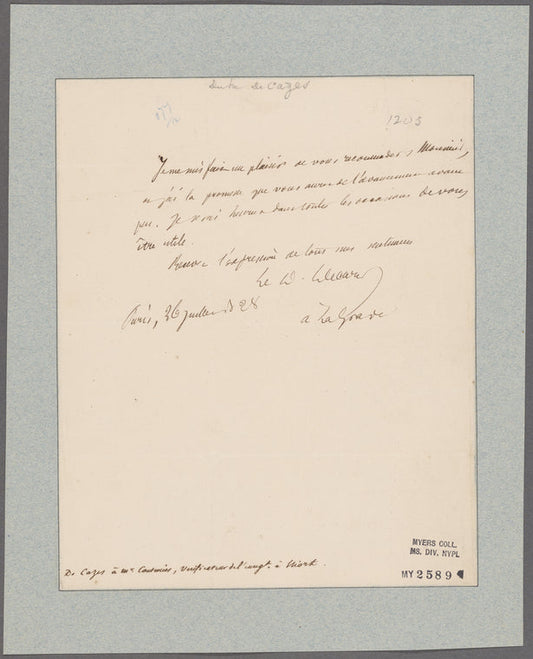 De Cazes
1205
Je me suis fait un plaisir de vous recommander, Monsieur,
j'ai la promesse que vous aurez de l'avancement avant
peu. Je serai heureux dans toutes les occasions de vous
être utile.
l'expression de tous mes sentimens
Le D.
Paris, 26 juillet 28
à
De Cazes à Mr. , Vérificateur de l'enregt. à Niort.
MYERS COLL.
MS. DIV. NYPL
MY 2589